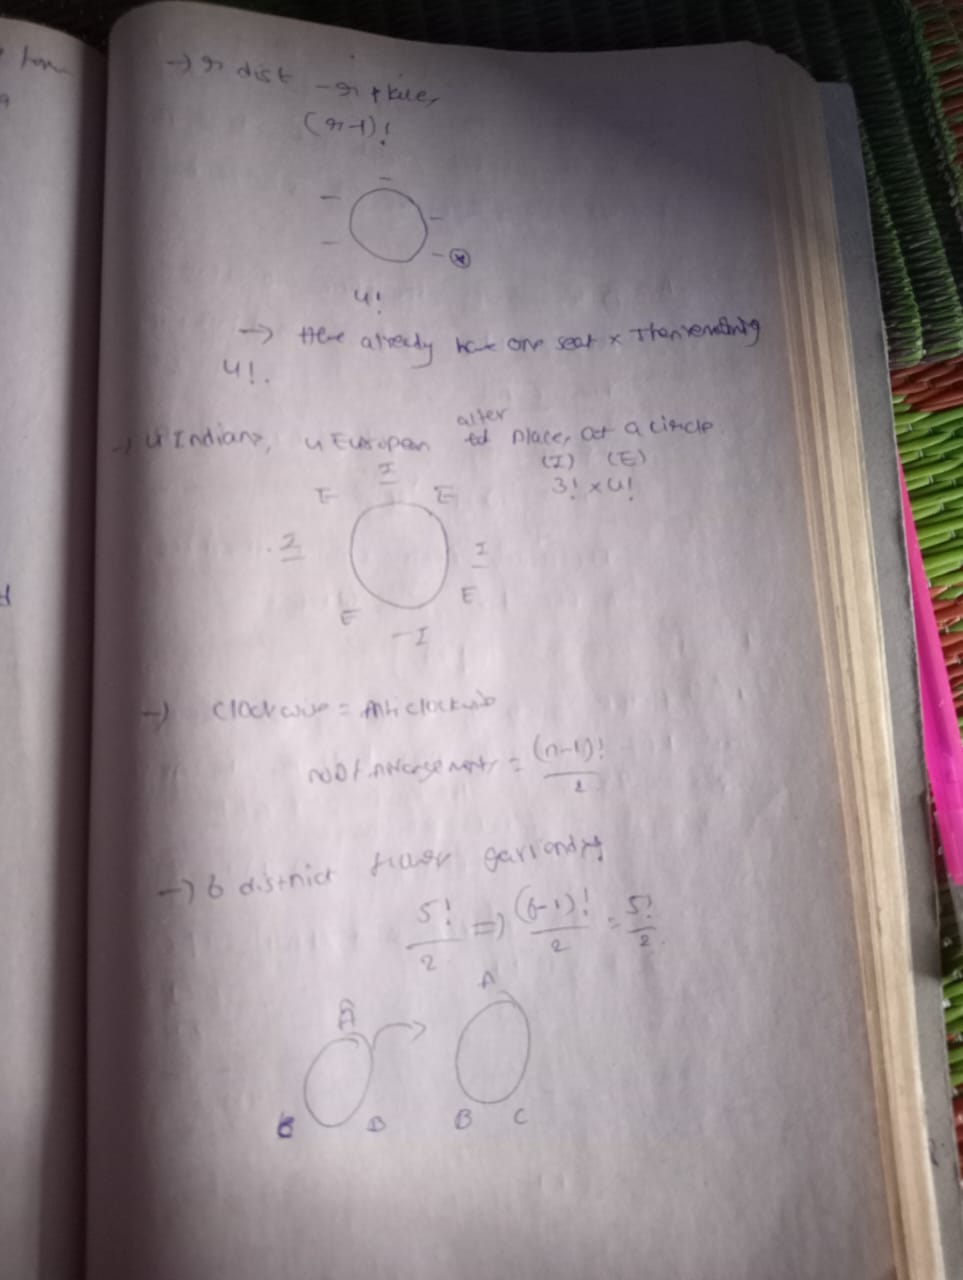 → r dist - r
(r-1)!
4!
→ Here already have one seat x Then remaining
4!.
→ 4 Indians, 4 European alter place, at a circle
(I) (E)
3! x 4!
I
E E
I I
E E
I
→ Clockwise = Anticlockwis
no of arrangements = (n-1)!/2
→ 6 distnict flower
5!/2 => (6-1)!/2 = 5!/2
A A
B B C